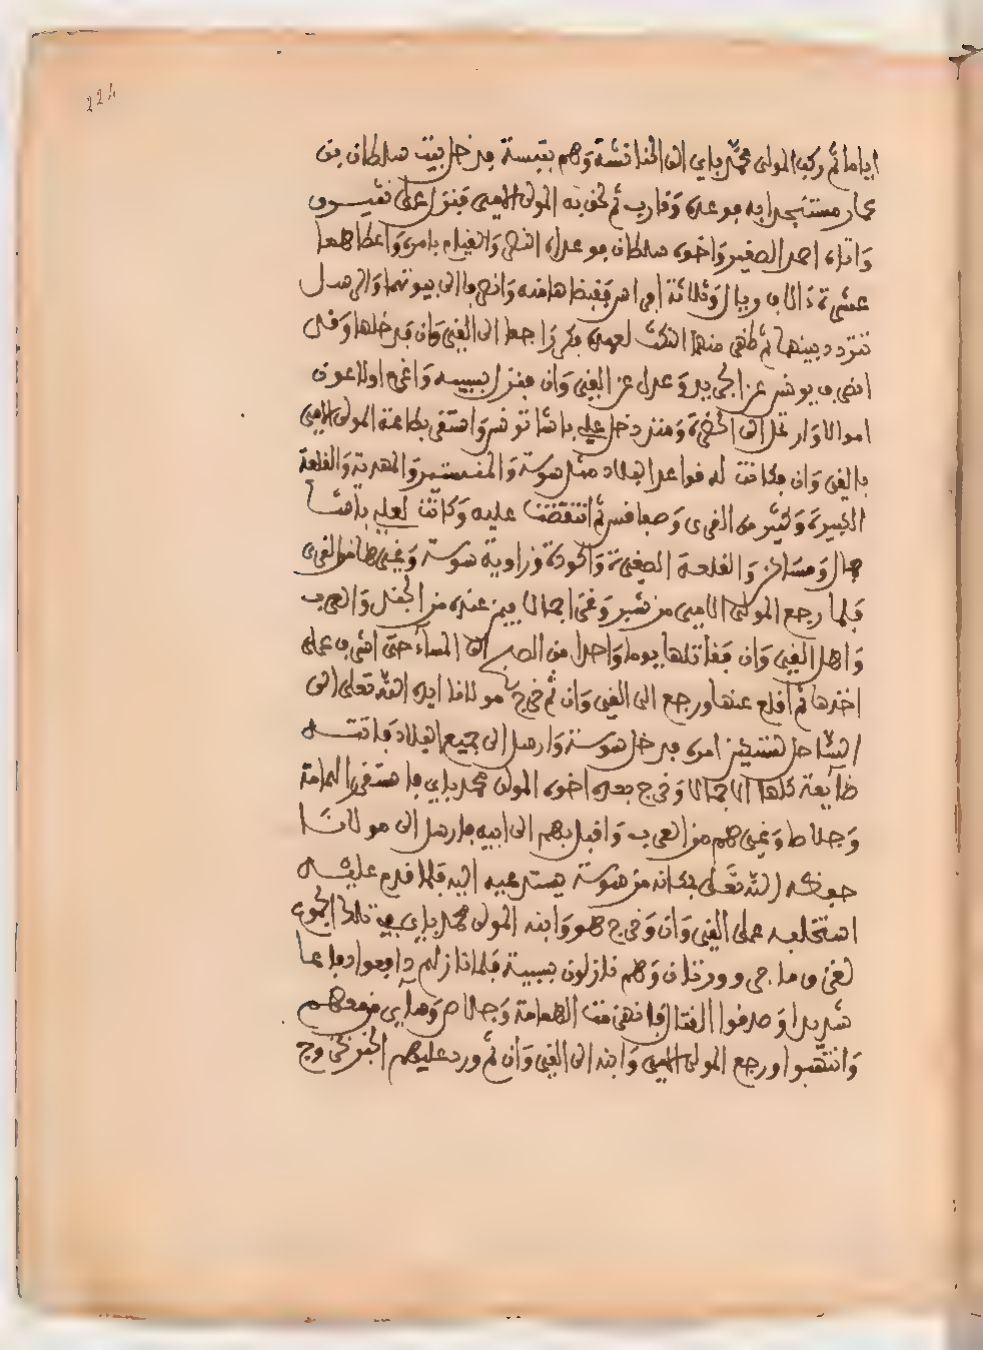 224
اياما ثم ركب المولى محمد باي الى الحنانشة وهم بتبسة فدخل بيت سلطان بن
عمار مستنجدا به فوعده وقارب ثم لحق به المولى الامير فنزل على نفيسه
واتاه احمد الصغير واخوه سلطان فوعداه النصر والقيام بامره واعطاهما
عشرة ءالاف ريال وثلاثة افراس فقبضاها منه وانصرفا الى بيوتهما والرسل
تتردد بينهما ثم ظهر منهما النكث لعهده فكر راجعا الى القيروان فدخلها وقد
انصرف يونس عن الجريد وعدل عن القيروان فنزل بسبيبه واغرم اولاد عون
اموالا وارتحل الى الحضرة ومنذ دخل علي باشا تونس واستقر بطاعته المولى الامير
بالقيروان فكانت له قواعد البلاد مثل سوسة والمنستير والمهدية والقلعة
الكبيرة وكثير من القرى وصفاقس ثم انتقضت عليه وكانت لعلي باشا
جمال ومساكن والقلعة الصغيرة واكودة وزاوية سوسة وغيرها من القرى
فلما رجع المولى الامير من نفير وغزا جمالا بمن عنده من الجند والعرب
واهل القيروان فقاتلها يوما واحدا من الصبح الى المساء حتى اشرف على
اخذها ثم اقلع عنها ورجع الى القيروان ثم خرج مولانا ايده الله تعلى الى
الساحل لتسكين امره فدخل سوسة وارسل الى جميع البلاد فاتته
طائعة كلها الا جمالا وخرج بعده اخوه المولى محمد باي فاستفز الهمامة
وجلاص وغيرهم من العرب واقبل بهم الى ابيه فارسل الى مولانا
حفظه الله تعلى بمكانه من سوسة يستدعيه اليه فلما قدم عليه
استخلفه على القيروان وخرج هو وابنه المولى محمد باي في تلك الجموع
لغزو ماجر وورتان وهم نازلون بسبيبة فلما نازلهم دافعوا دفاعا
شديدا وصدقوا القتال فانهزمت الهمامة وجلاص ومن معهم
وانتهبوا ورجع المولى الامير وابنه الى القيروان ثم ورد عليهم الخبر بخروج